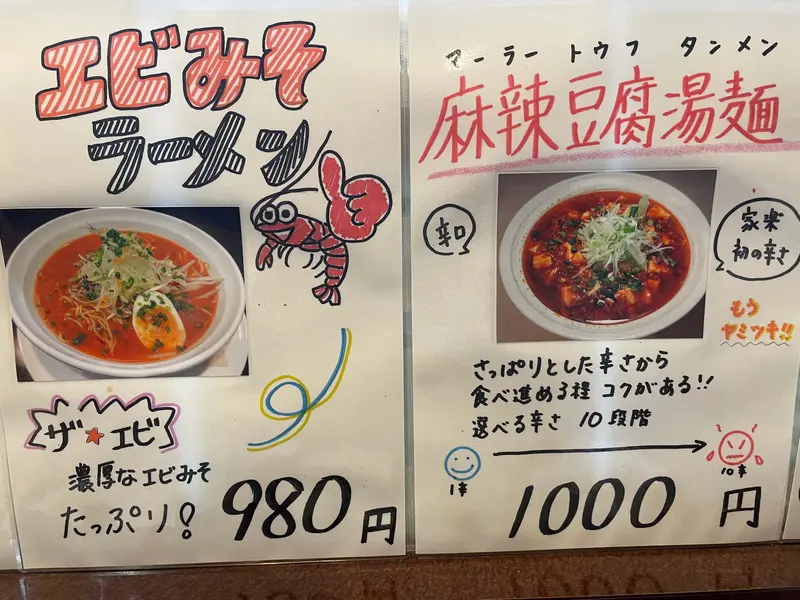 エビみそ
ラーメン
ザ★エビ
濃厚なエビみそ
たっぷり!
980円
マーラー トウフ タンメン
麻辣豆腐湯麺
辛口
家楽
初の辛さ
もう
ヤミツキ!!
さっぱりとした辛さから
食べ進める程 コクがある!!
選べる辛さ 10段階
1辛
10辛
1000円